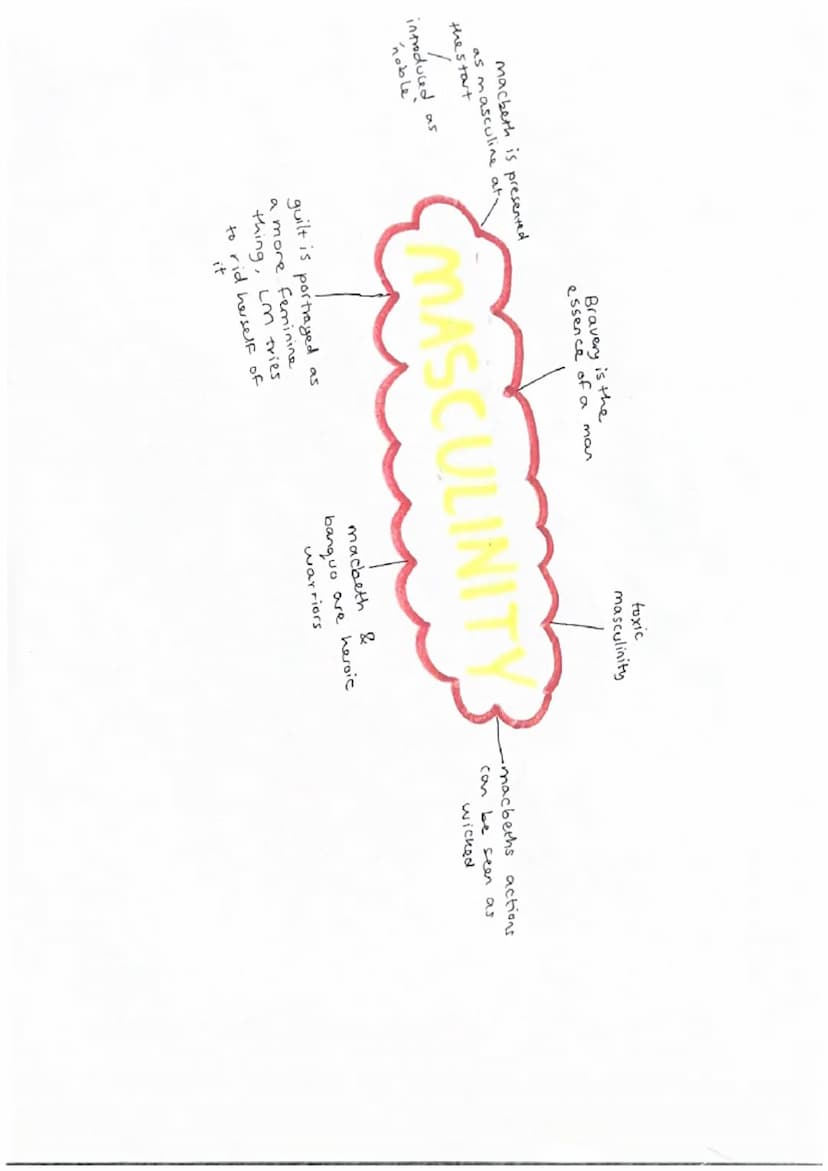 macbeth is presented
as masculine at
the start
introduced as
'noble'
Bravery is the
essence of a man
toxic
masculinity
MASCULINITY
guilt is portrayed as
a more feminine
thing, LM tries
to rid herself of
it
macbeth &
banquo are heroic
warriors
macbeths actions
can be seen as
wicked